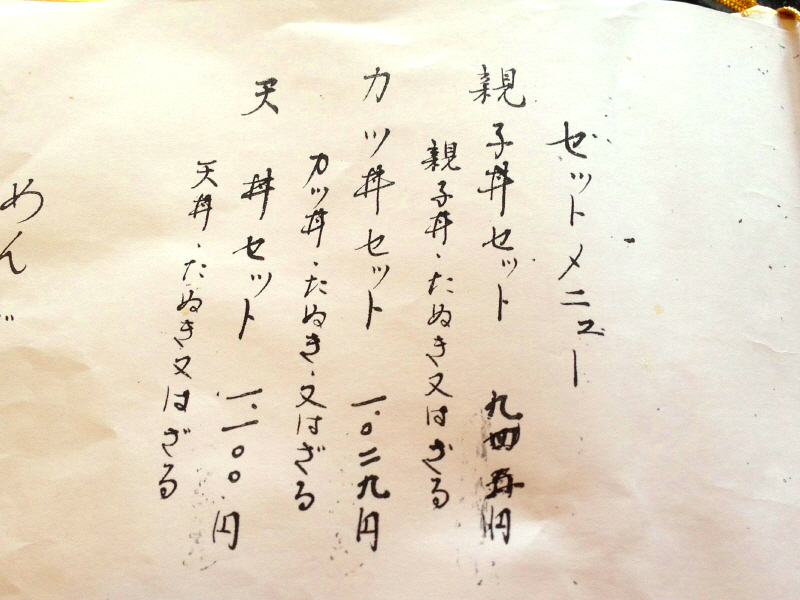 セットメニュー
親子丼セット 九四五円
親子丼・たぬき又はざる
カツ丼セット 一、〇二九円
カツ丼・たぬき・又はざる
天丼セット 一、一〇〇円
天丼・たぬき又はざる
めん